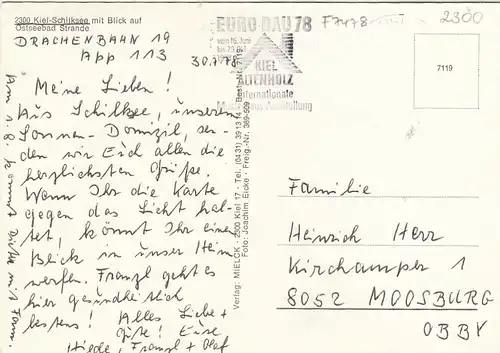 2300 Kiel-Schilksee mit Blick auf
Ostseebad Strande
DRACHENBAHN 19
APP 113
30.7.78
Meine Lieben!
Aus Schilksee, unserem
Sonnen-Domizil, sen-
den wir Euch allen die
herzlichsten Grüße.
Wenn Ihr die Karte
gegen das Licht hal-
tet, könnt Ihr einen
Blick in unser Heim
werfen. Franzl geht es
hier gesundheitlich
bestens! Alles Liebe +
Gute! Eure
Hilde, Franzl + Olaf
Am 1.8. kommt
Verlag: MIELCK · 2300 Kiel 17 · Tel. (0431) 3913
Foto: Joachim Eicke · Freig.-Nr.
EURO-BAU 78
vom 16. Juni
KIEL
ALTENHOLZ
Internationale
F7478
2300
7119
Familie
Heinrich Herr
Kirchamper 1
8052 MOOSBURG
OBBY